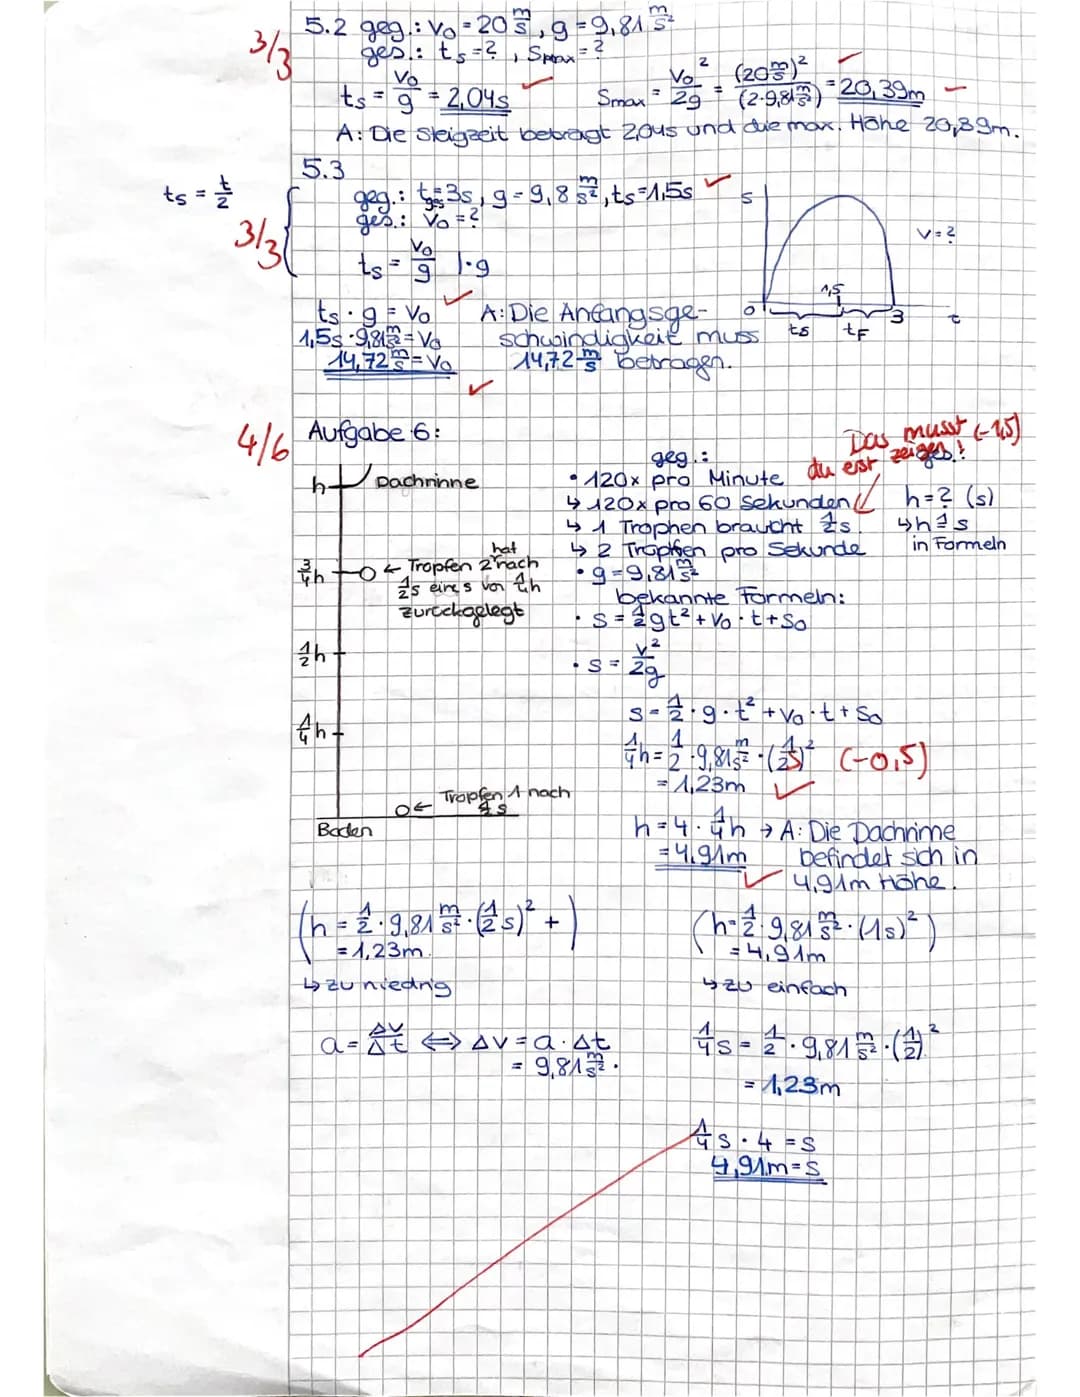 5.2 geg.: v₀ = 20 m/s, g = 9,81 m/s²
3/3
ges.: ts = ?, Smax = ?
ts = v₀/g = 2,04s
Smax = v₀²/2g = (20 m/s)²/(2·9,81 m/s²) = 20,39m
A: Die Steigzeit beträgt 2,04s und die max. Höhe 20,39m.
5.3
ts = t/2
geg.: tges = 3s, g = 9,8 m/s², ts = 1,5s
ges.: v₀ = ?
3/3
ts = v₀/g |·g
ts · g = v₀
1,5s · 9,81 m/s² = v₀
14,72 m/s = v₀
A: Die Anfangsge-
schwindigkeit muss
14,72 m/s betragen.
s
v = ?
1,5
0
3
t
ts
tF
4/6
Aufgabe 6:
Das musst (-1,5)
du erst zeigen!
h
Dachrinne
3/4 h
Tropfen 2 hat nach
1/2 s eines von 1/4 h
zurückgelegt
1/2 h
1/4 h
Tropfen 1 nach
1/2 s
Boden
geg.:
ges.:
• 120x pro Minute
↳ 120x pro 60 Sekunden
↳ 1 Trophen braucht 1/2 s
↳ 2 Tropfen pro Sekunde
h = ? (s)
↳ h ≙ s
in Formeln
• g = 9,81 m/s²
bekannte Formeln:
• s = 1/2 gt² + v₀ · t + s₀
• s = v²/2g
s = 1/2 · g · t² + v₀ · t + s₀
1/4 h = 1/2 · 9,81 m/s² · (1/2 s)² (-0,5)
= 1,23m
h = 4 · 1/4 h → A: Die Dachrinne
= 4,91m befindet sich in
4,91m Höhe.
(h = 1/2 · 9,81 m/s² · (1/2 s)² + )
= 1,23m.
↳ zu niedrig
(h = 1/2 · 9,81 m/s² · (1s)²)
= 4,91m
↳ zu einfach
a = Δv/Δt ⟺ Δv = a · Δt
= 9,81 m/s² ·
1/4 s = 1/2 · 9,81 m/s² · (1/2)²
= 1,23m
1/4 s · 4 = s
4,91m = s